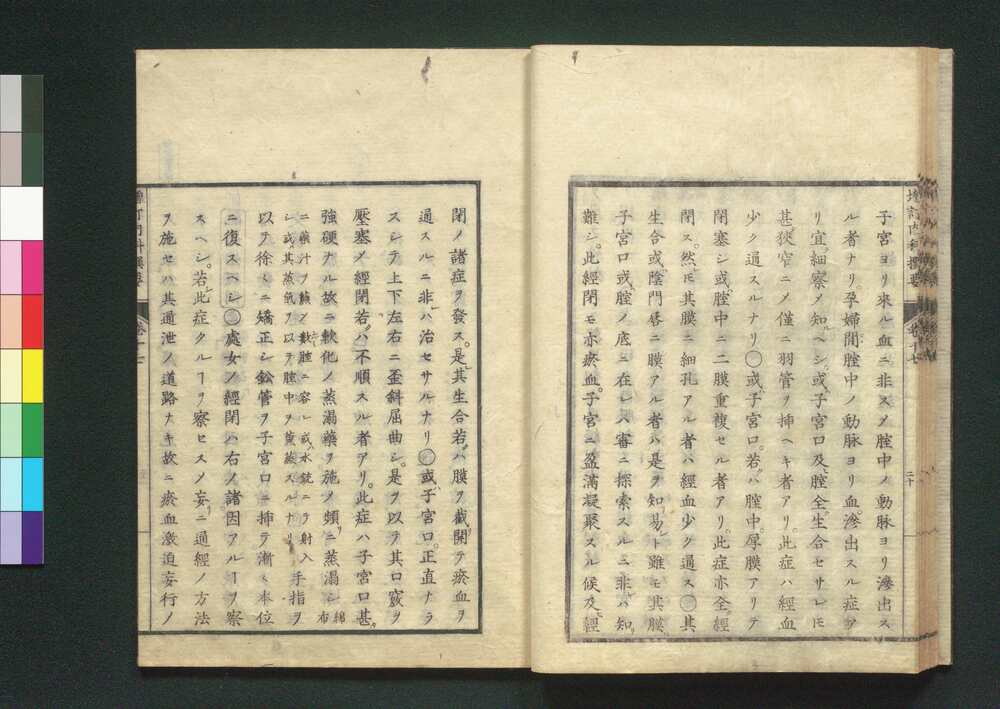 子宮ヨリ來ル血ニ非スメ腟中ノ動脉ヨリ滲出ス
ル者ナリ。孕婦間腟中ノ動脉ヨリ血滲出スル症ア
リ宜細察メ知ヘシ。或子宮口及腟全生合セサレ𪜈
甚狹窄ニメ僅ニ羽管ヲ挿ヘキ者アリ。此症ハ經血
少ク通スルナリ○或子宮口。若ハ腟中。厚膜アリテ
閉塞シ或腟中ニ二膜重複セル者アリ。此症亦全經
閉ス。然𪜈其膜ニ細孔アル者ハ經血少ク通ス○其
生合或陰門唇ニ膜アル者ハ是ヲ知易ト雖モ其膜
子宮口或腟ノ底ニ在レハ審ニ探索スルニ非ハ知
難シ。此經閉モ亦瘀血。子宮ニ盈滿凝聚スル候及經
増訂内科撰要 卷十七 二十
閉ノ諸症ヲ發ス。是其生合若ハ膜ヲ截開テ瘀血ヲ
通スルニ非ハ治セサルナリ○或子宮口。正直ナラ
スシテ上下左右ニ歪斜屈曲シ。是ヲ以テ其口竅ヲ
壓塞メ經閉若ハ不順スル者アリ。此症ハ子宮口甚
強硬ナル故ニ軟化ノ蒸溻藥ヲ施メ頻ニ蒸溻シ 綿布
ニ藥汁ヲ䤄シ數腟ニ容レ或水銃ニテ射入
シ或其蒸氣ヲ以テ腟中ヲ薫蒸スルナリ 手指ヲ
以テ徐々ニ矯正シ鉛管ヲ子宮口ニ挿テ漸々本位
ニ復スヘシ○處女ノ經閉ハ右ノ諸因アルヿヲ察
スヘシ。若此症タルヿヲ察セスメ妄ニ通經ノ方法
ヲ施セハ其通泄ノ道路ナキ故ニ瘀血激迫妄行ノ